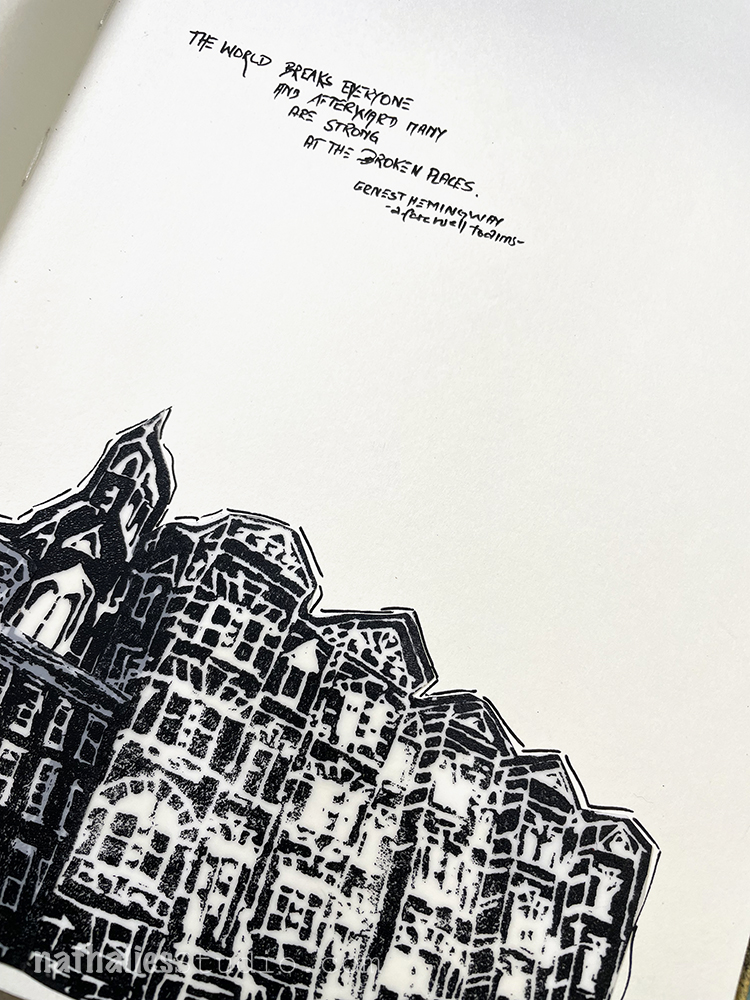 THE WORLD BREAKS EVERYONE
AND AFTERWARD MANY
ARE STRONG
AT THE BROKEN PLACES.
ERNEST HEMINGWAY
-a farewell to arms-
nathaliesstudio.com